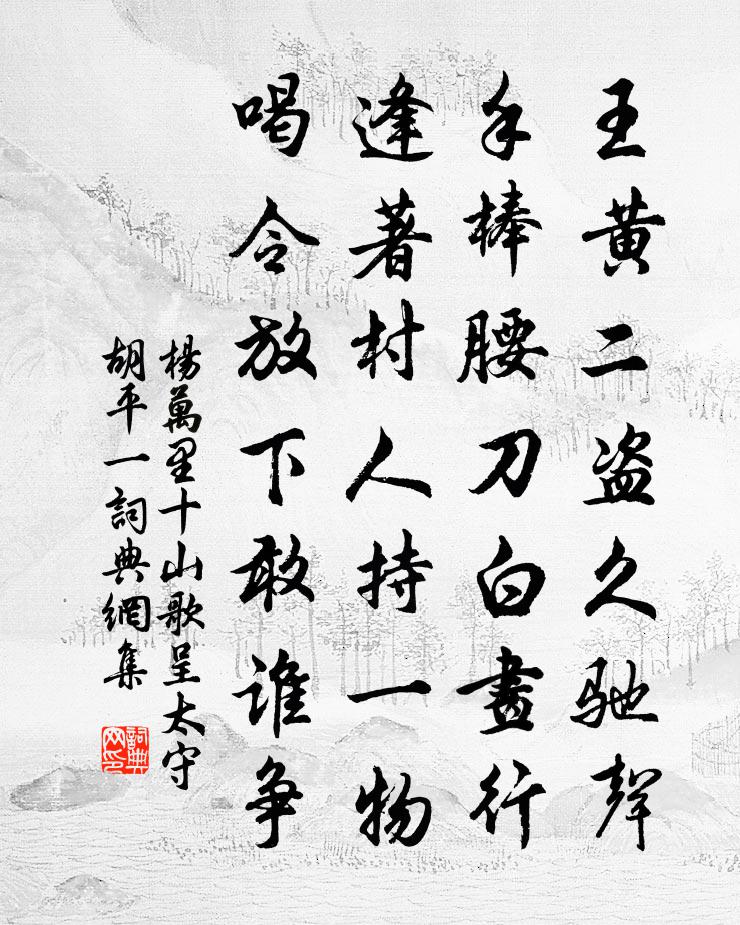 王黄二盗久驰聲
手棒腰刀白晝行
逢著村人持一物
喝令放下敢谁争
楊萬里十山歌呈太守
胡平一詞典網集
詞典网印